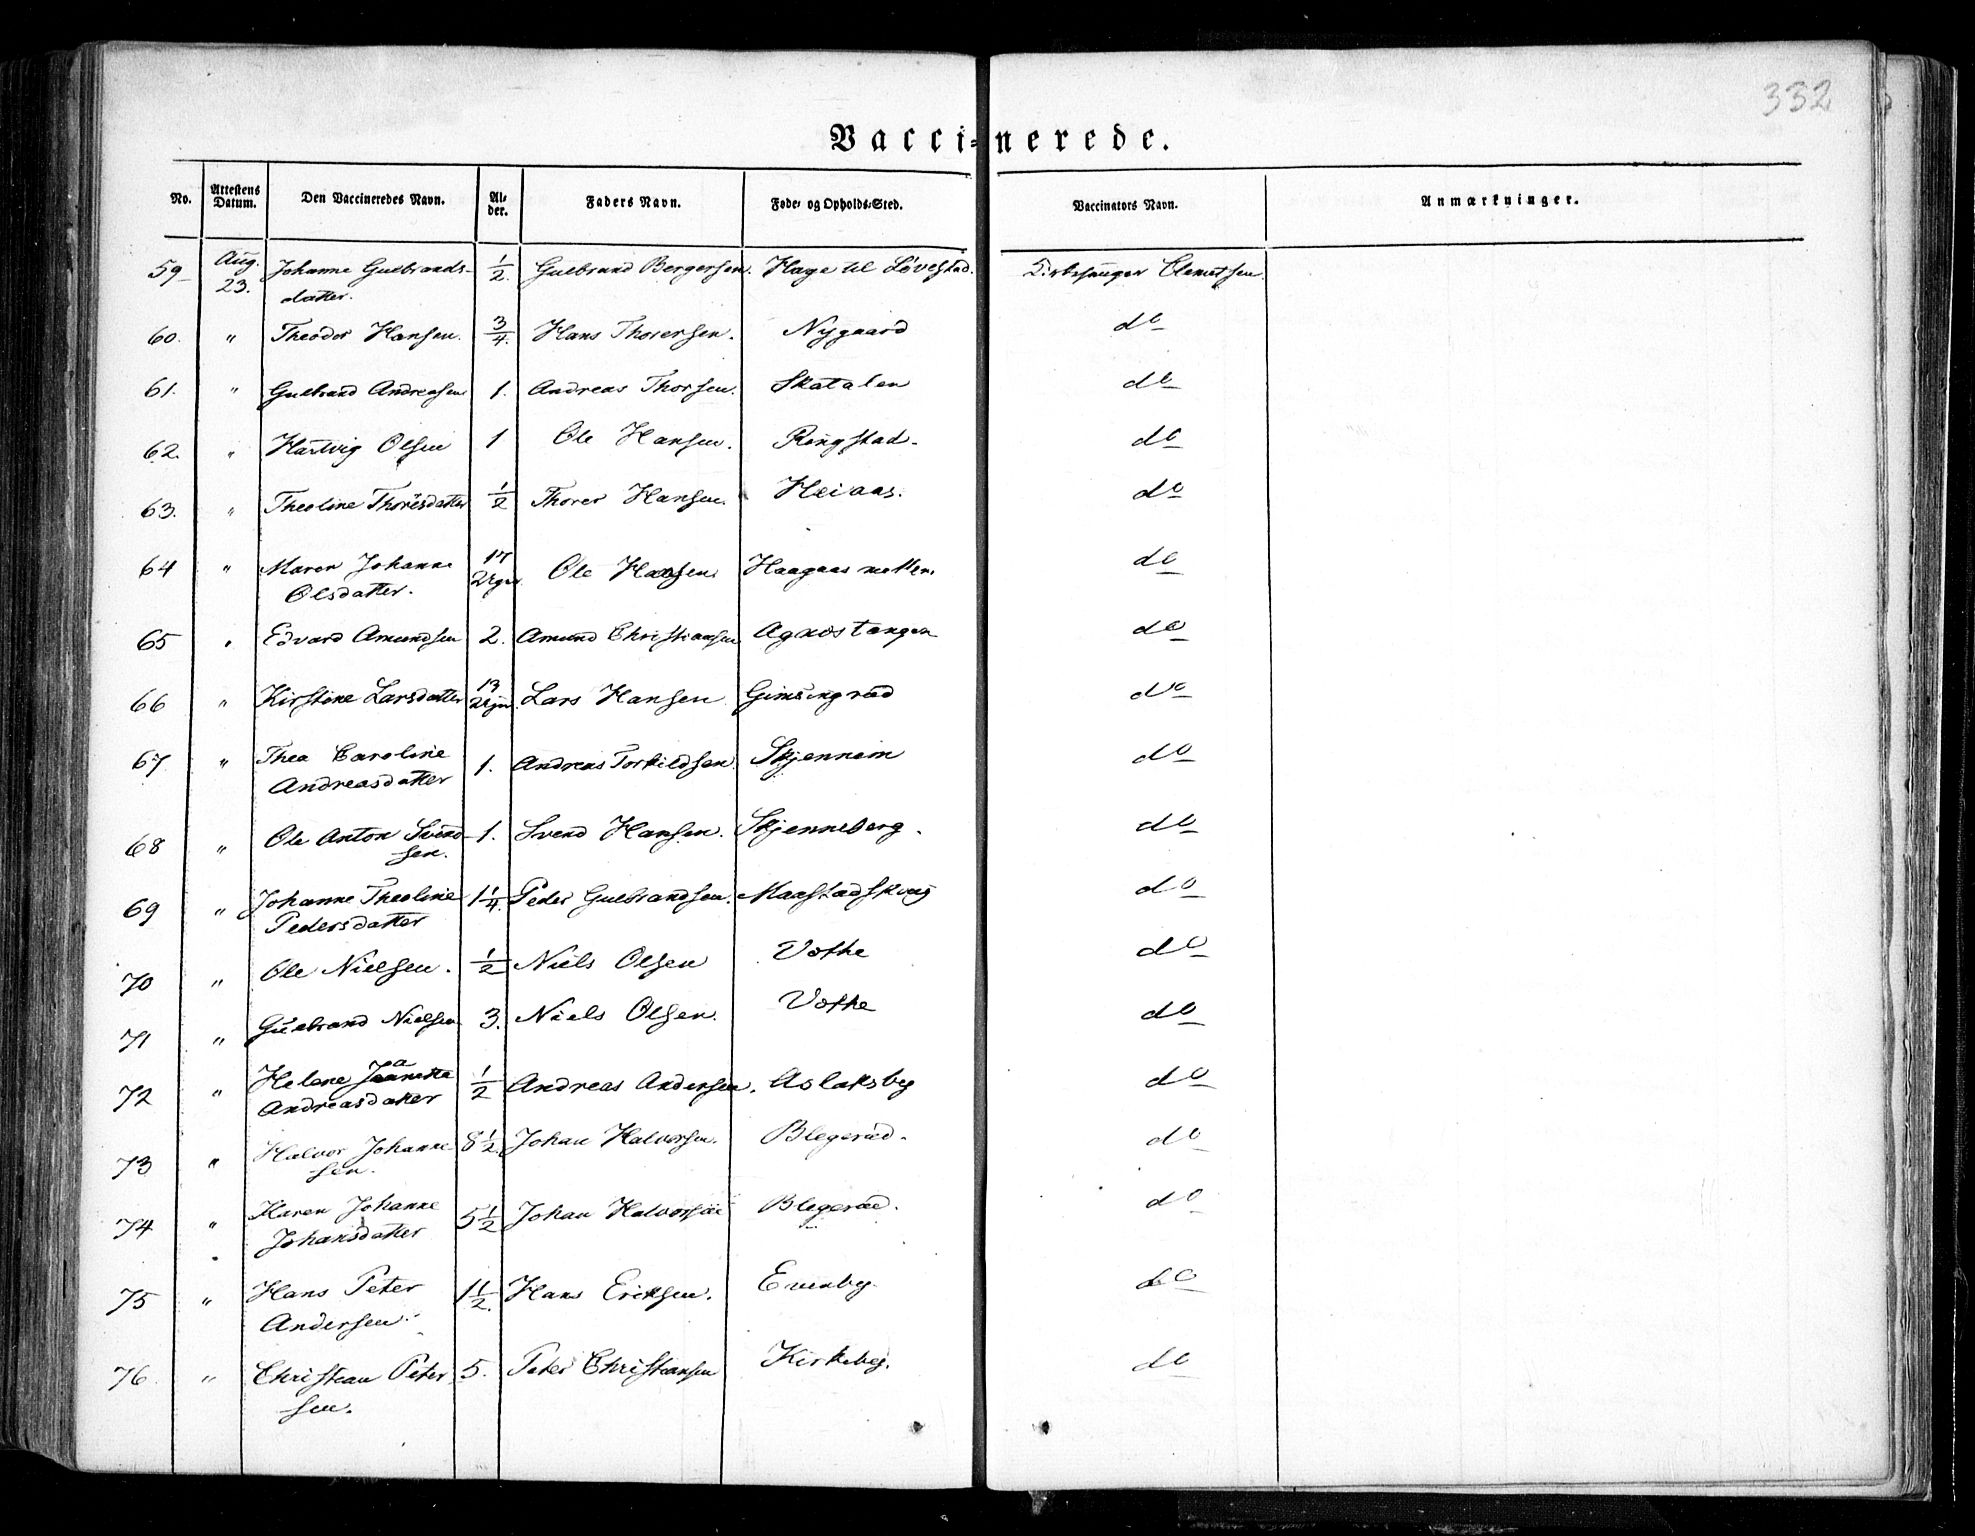 332
Vaccinerede.
No. Attestens Datum. Den Vaccineredes Navn. Alder. Faders Navn. Føde- og Opholds-Sted. Vaccinators Navn. Anmærkninger.
59 Aug. 23. Johanne Gulbrands- 1/2 Gulbrand Bergersen. Hage til Løvestad. Kirkesanger Clemetsen
datter.
60. " Theodor Hansen. 3/4. Hans Thorersen. Nygaard do
61. " Gulbrand Andreasen 1. Andreas Thorsen. Skatalen do
62. " Hartvig Olsen 1 Ole Hansen. Ringstad do
63. " Theoline Thorersdatter 1/2 Thorer Hansen. Heiaas. do
64 " Maren Johanne 17 Ole Hansen do
Olsdatter.
65 " Edvard Amundsen 2. Amund Christiansen Agnostangen do
66 " Kirstine Larsdatter 13 Lars Hansen Gimsingrød do
67 " Thea Caroline 1. Andreas Torkildsen. Skjennem do
Andreasdatter
68 " Ole Anton Svend- 1. Svend Hansen. Skjenneberg. do
sen.
69 " Johanne Theoline 1 1/4. Peder Gulbrandsen. do
Pedersdatter
70 " Ole Nielsen. 1/2 Niels Olsen Vothe do
71 " Gulbrand Nielsen 3. Niels Olsen. Vothe do
72 " Helene Jeanette 1/2 Andreas Andersen. Aslaksby do
Andreasdatter
73 " Halvor Johanne- 8 1/2. Johan Halvorsen. Blegerød. do
sen.
74 " Karen Johanne 5 1/2 Johan Halvorsen Blegerød. do
Johansdatter
75 " Hans Peter 1 1/2. Hans Eriksen. Evenby. do
Andersen.
76. " Christian Peter 5. Peter Christiansen Kirkeby. do
sen.